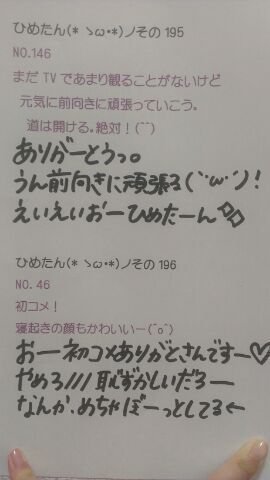 ひめたん(* ゝω・*)ノその 195
NO.146
まだ TV であまり観ることがないけど
元気に前向きに頑張っていこう。
道は開ける。絶対！(^^)
ありがーとうっ。
うん前向きに頑張る(｀･ω･´)ノ！
えいえいおーひめたーん◇◇
ひめたん(* ゝω・*)ノその 196
NO.46
初コメ！
寝起きの顔もかわいいー(^o^)
おー初コメありがとさんですー♡
やめろ///恥ずかしいだろー
なんか、めちゃぼーっとしてる←